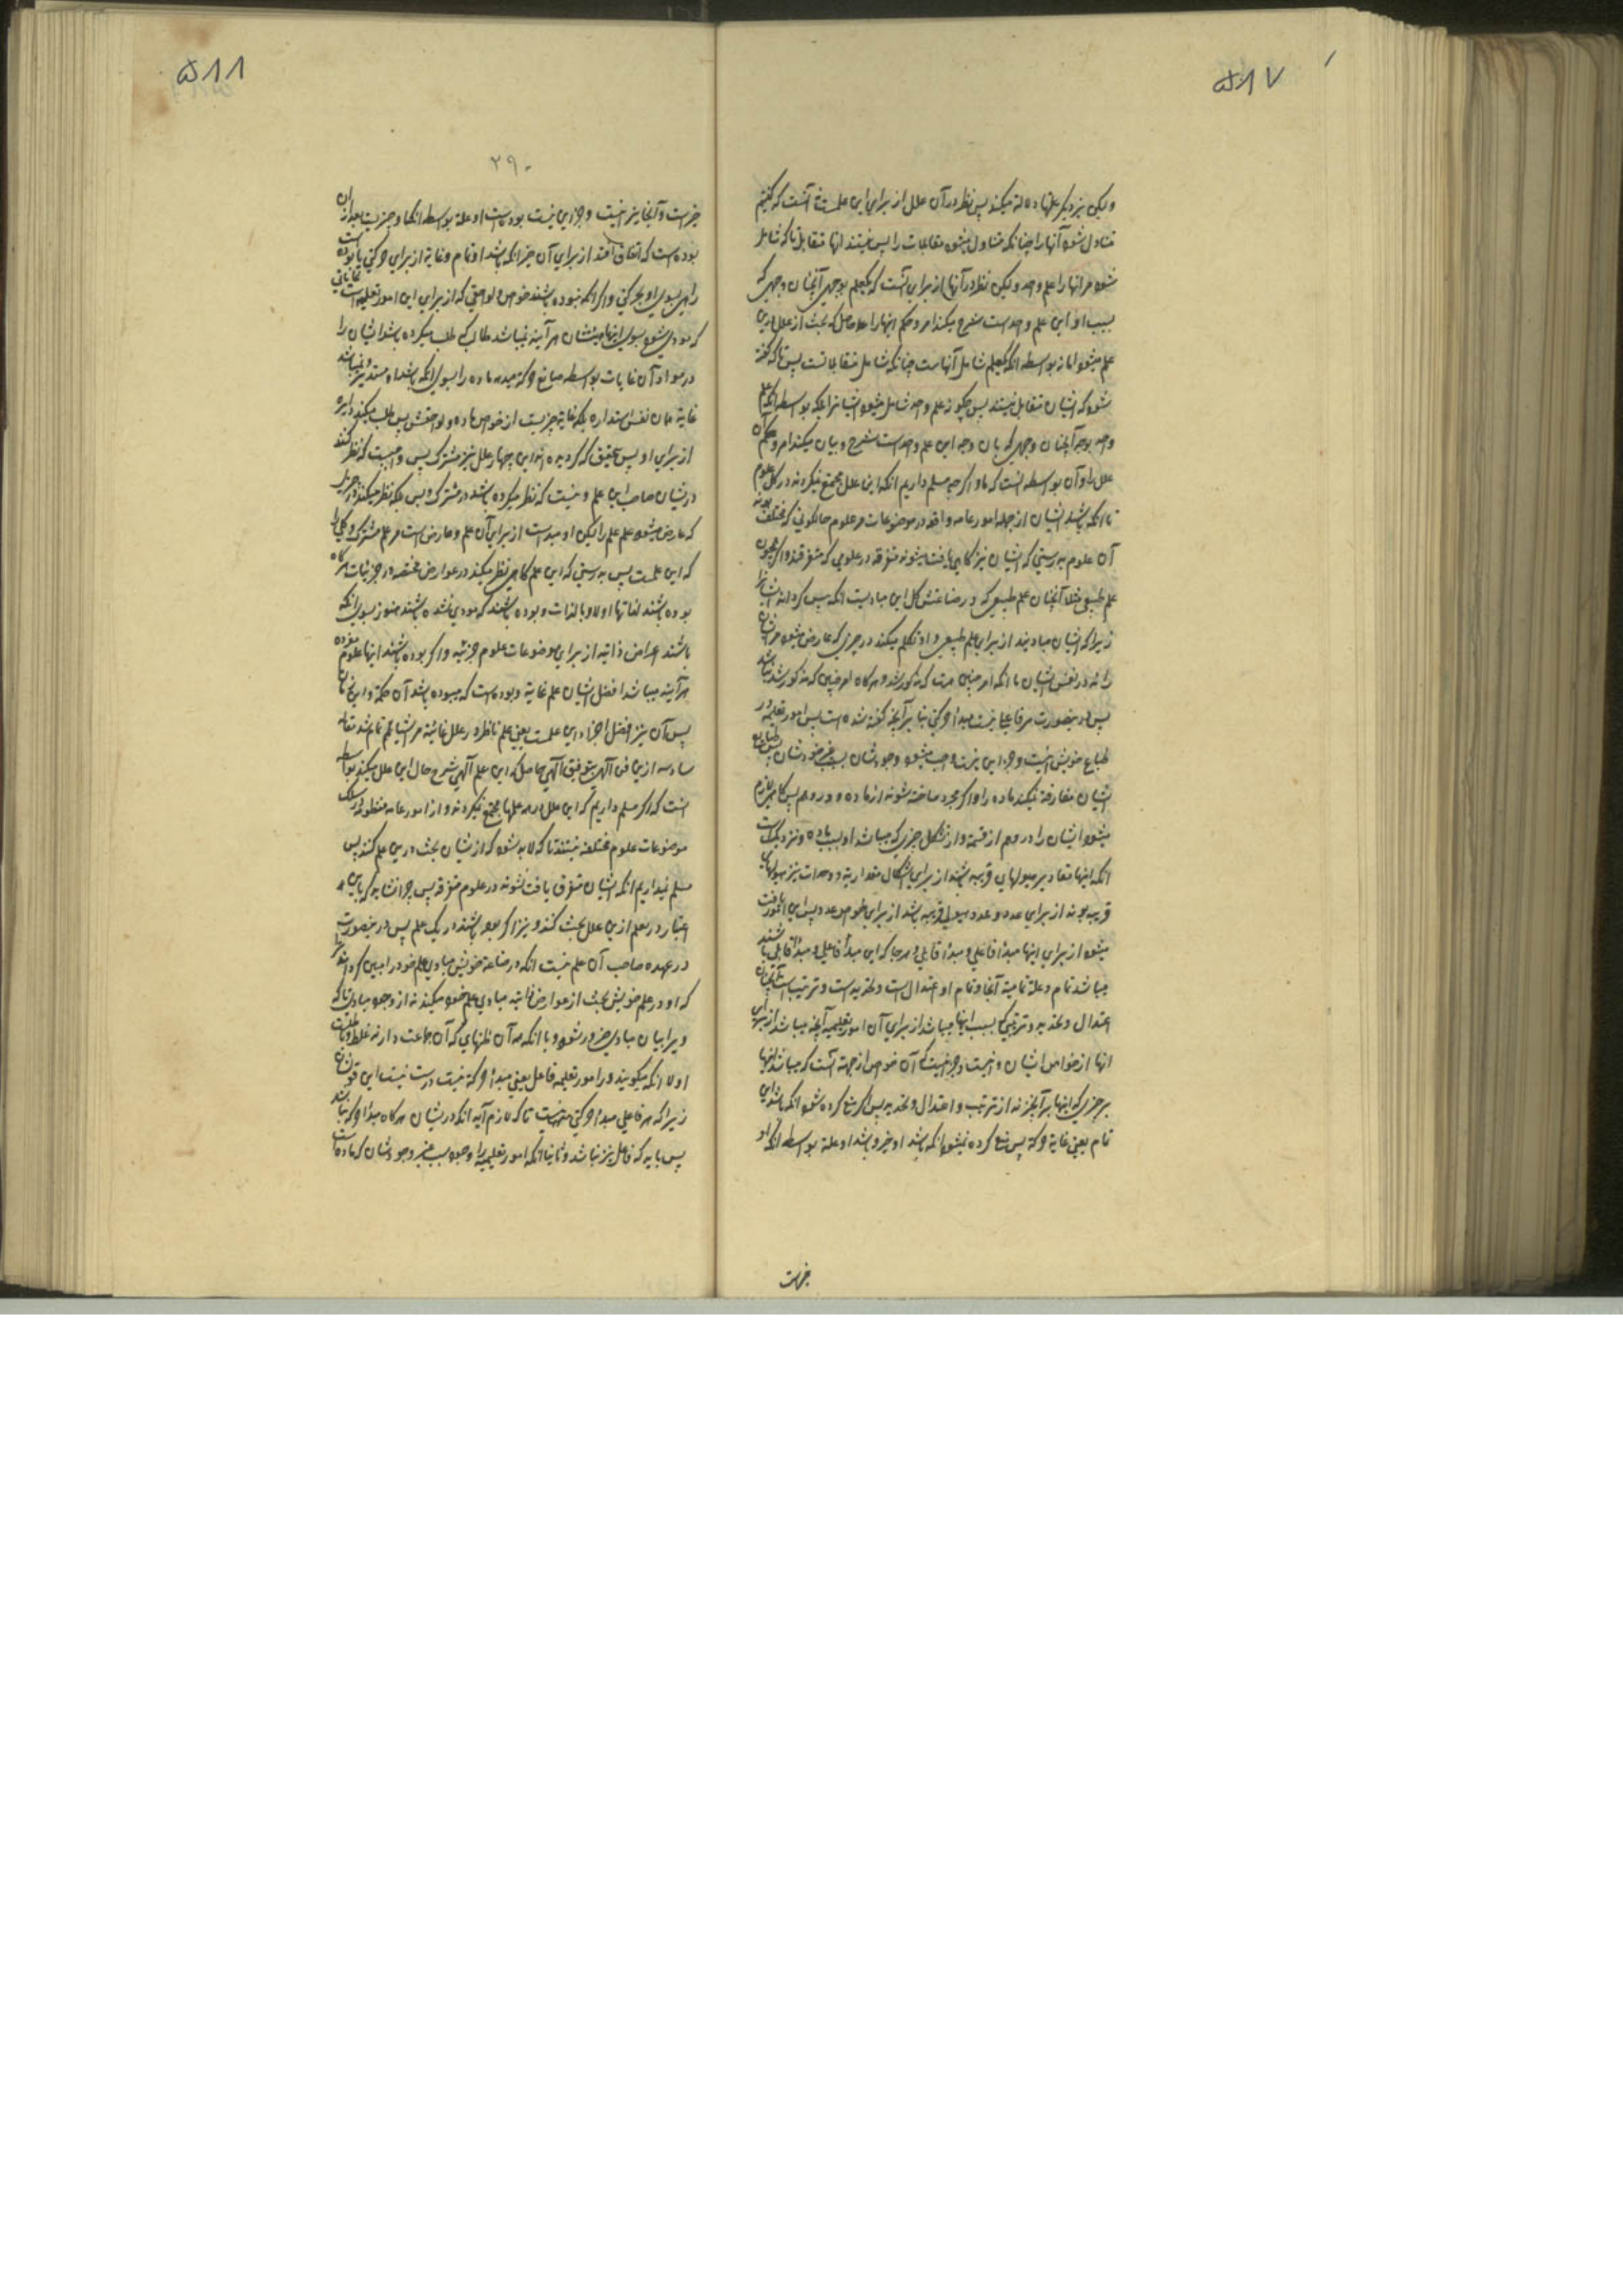 ۵۸۷
ولیکن نیز دیگر علتها دلالة میکند پس نظر در آن علل از برای این علمست آنست که گفتیم
متناول شود آنها را چنانکه متناول میشود مقابلات را پس نیستند اینها متقابل تا که شامل
شود مر انها را علم واحد ولیکن نظر در آنها از برای آنست که یکعلم بوجهی آنچنان وجهی که
بسبب او این علم واحدست شرح میکند امر و حکم اینها را حاصل که بحث از علل درین
علم میشود اما نه بواسطه انکه یکعلم شامل آنهاست چنانکه شامل متقابلاتست پس تا که گفته
شود که ایشان متقابل نیستند پس چگونه علم واحد شامل میشود ایشانرا بلکه بواسطه انکه علم
واحد بوجه آنچنان وجهی که بان وجه این علم واحدست شرح و بیان میکند امر و حکم آن
علل را و آن بواسطه انست که ما و اگر چه مسلم داریم انکه این علل مجتمع نیکردند در کل علوم
تا انکه باشند ایشان از جمله امور عامه واقعه در موضوعات مر علوم حالکونی که مختلف بوند
آن علوم بدرستی که ایشان نیز گاهی یافت میشوند متفرقه در علومی که متفرقند و اگر بودن
علم طبیعی مثلا آنچنان علم طبیعی که در صناعتش کل این مبادیست انکه مبین گرداند ایشانرا
زیرا که ایشان مبادیند از برای علم طبیعی و او تکلم میکند در چیزی که عارض میشود مر ایشان
را نه در نفس ایشان با انکه امر چنین است که مذکور شد و هر گاه امر چنین که مذکور شد باشد
پس در ینصورت هر فاعلی نیست مبدأ حرکتی بنا بر آنچه گفته شده است پس امور تعلیمیه در
طباع خویش نیست و جز این نیست واجب میشود وجودشان بسبب غیر خودشان پس طبایع
ایشان مفارقة نیکند ماده را و اگر مجرد ساخته شوند از ماده در وهم پس گاهی لازم
میشود ایشان را در وهم از قسمة و از تشکل چیزی که میباشد او بسبب ماده و نزدیکست
انکه اینها مقادیر هیولهای قریبه باشند از برای اشکال مقداریة و وحدات نیز هیولهای
قریب بوند از برای عدد و عدد هیولی قریبه باشد از برای خواص عدد پس این امور یافت
میشود از برای اینها مبدأ فاعلی و مبدأ قابلی و هر جا که این مبدأ فاعلی و مبدأ قابلی باشند
میباشد تمام و علة تمامیة آنجا و تمام او اعتدال است و تحدیدست و ترتیب است آنچنان
اعتدال و تحدید و ترتیبی که بسبب اینها میباشد از برای آن امور تعلیمیه آنچه میباشد از برای
انها از خواص ایشان و نیست و جز نیست که آن خواص از جهت آنست که میباشد اینها
بر چیزی که اینها بر آنچیزند از ترتیب و اعتدال و تحدید پس اگر منع کرده شود انکه باشد این
تمام یعنی غایة حرکة پس منع کرده نمیشود انکه باشد او خیر و باشد او علة بواسطه انکه او
خیرست
۵۸۸
۲۹۰
خیرست و آنجا نیز نیست و جز این نیست بوده است او علة بواسطه انکه او خیریست بعد از ان
بوده است که اتفاق افتد از برای آن خیر انکه باشد او تمام و غایة از برای حرکتی یا بوده است
راهی بسوی او بحرکتی و اگر انکه نبوده باشند خواص و لواحقی که از برای این امور تعلیمیه است غایاتی
که مودی شود بسوی اینها مبنشان هر آینه نمیباشد طالب که طلب میکرده باشد ایشان را
در مواد آن غایات بواسطه صانع حرکة میدهد ماده را بسوی انکه باشد او مستدیر و نمیباشد
غایة همان نفس استداره بلکه غایة چیزیست از خواص ماده و لواحقش پس طلب میکند دایره
از برای او پس تحقیق که کردیده اند این چهار علل نیز مشترک پس واجبست که نظر کند
در یشان صاحب این علم و نیست که نظر میکرده باشد در مشترک و بس بلکه نظر میکند در چیزی
که عارض میشود علم علم را لیکن او مبدست از برای آن علم و عارض است مر علم مشترک و کلی را
که این علمست پس بدرستی که این علم گاهی نظر میکند در عوارض مختصه در جزئیات هر گاه
بوده باشند لذاتها اولا و بالذات و بوده باشند که مودی نشده باشند هنوز بسوی انکه
باشند اعراض ذاتیه از برای موضوعات علوم جزئیه و اگر بوده باشند اینها علوم مفرده
هر آینه میباشد افضل ایشان علم غایة و بوده است که میبوده باشد آن حکمة و این زمان
پس آن نیز افضل اجزاء این علمست یعنی علم ناظر در علل غائیة مر اشیا تم تمام شد مقاله
سادسه از این فن آلهی بتوفیق الٓهی حاصل که این علم آلهی شرح حال این علل میکند بواسطه
انست که اگر مسلم داریم که این علل در همه علمها مجتمع نیکردند و از امور عامه منظوره در سلک
موضوعات علوم مختلفه نیستند تا که لابد شود که از یشان بحث در ین علم کنند پس
مسلم نیداریم انکه ایشان متفرق یافت نشوند در علوم متفرقه پس چرا نشاید که باین
اعتبار در ینعلم از ین علل بحث کنند و نیز اگر بوده باشند در یک علم پس در ینصورت
در عهده صاحب آن علم نیست انکه در صناعة خویش مبادی علم خود را مبین گرداند
که او در علم خویش بحث از عوارض ذاتیه مبادی علم خود میکند نه از وجود مبادی تا که
ویرا بیان مبادی ضرور شود و با انکه همه آن ظنهای که آن جماعت دارند غلط و باطلست
اولا انکه میگویند در امور تعلیمیه فاعل یعنی مبدأ حرکة نیست درست نیست این قول
زیرا که هر فاعلی مبدأ حرکتی نیست تا که لازم آید انکه در یشان هر گاه مبدأ حرکة نباشد
پس باید که فاعل نیز نباشد و ثانیا انکه امور تعلیمیه را وجود بسبب غیر وجودشان که ماده است